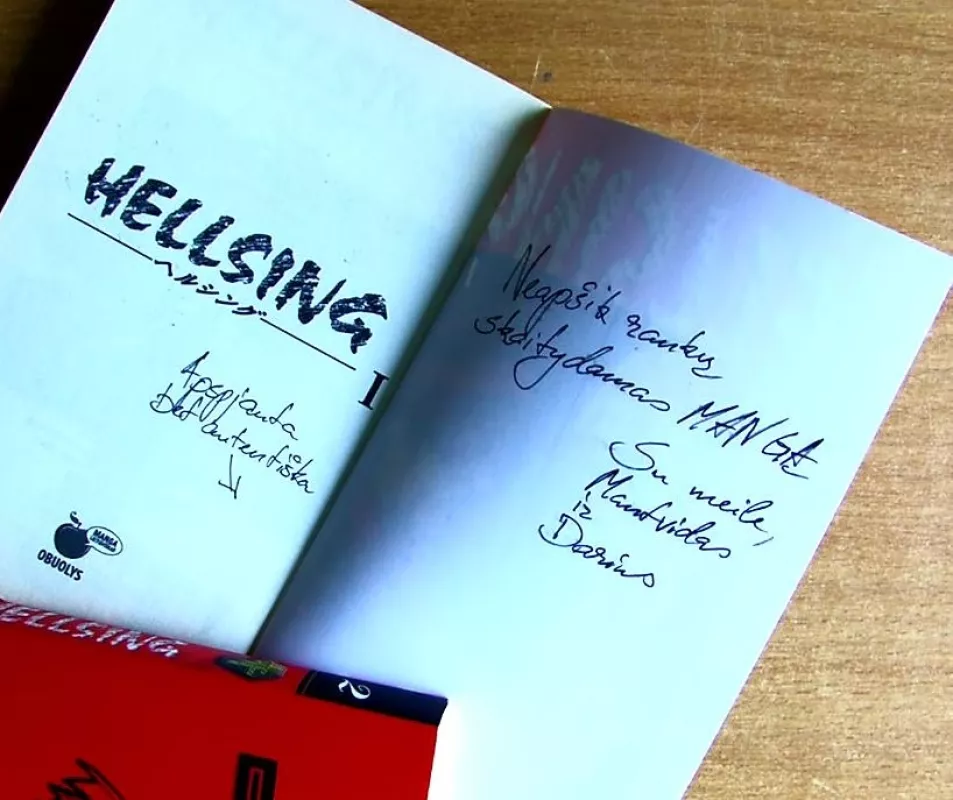 HELLSING
ヘルシング
I
Apspjauta
Bet autentiška
MANGA
OBUOLYS
Neapšik rankų
skaitydamas MANGĄ
Su meile,
Mantvidas
ir
Darius
HELLSING
2